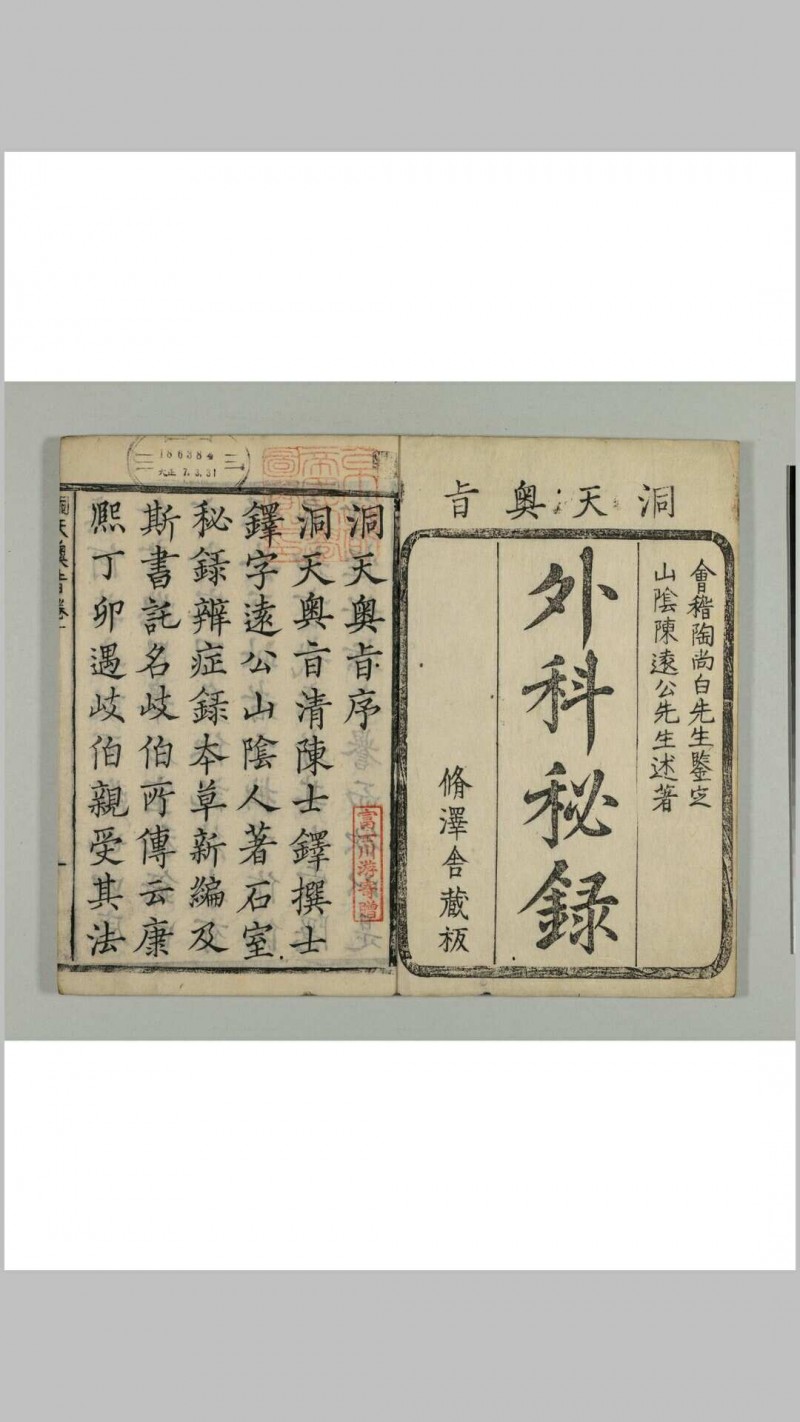 洞天奧旨
會稽陶尚白先生鑒定
山陰陳遠公先生述著
外科秘録
脩澤舍藏板
洞天奧旨序
洞天奧旨清陳士鐸撰士
鐸字遠公山陰人著石室
秘録辨症録本草新編及
斯書託名岐伯所傳云康
熈丁卯遇岐伯親受其法
186384
大正7.3.31
富士川游寄贈